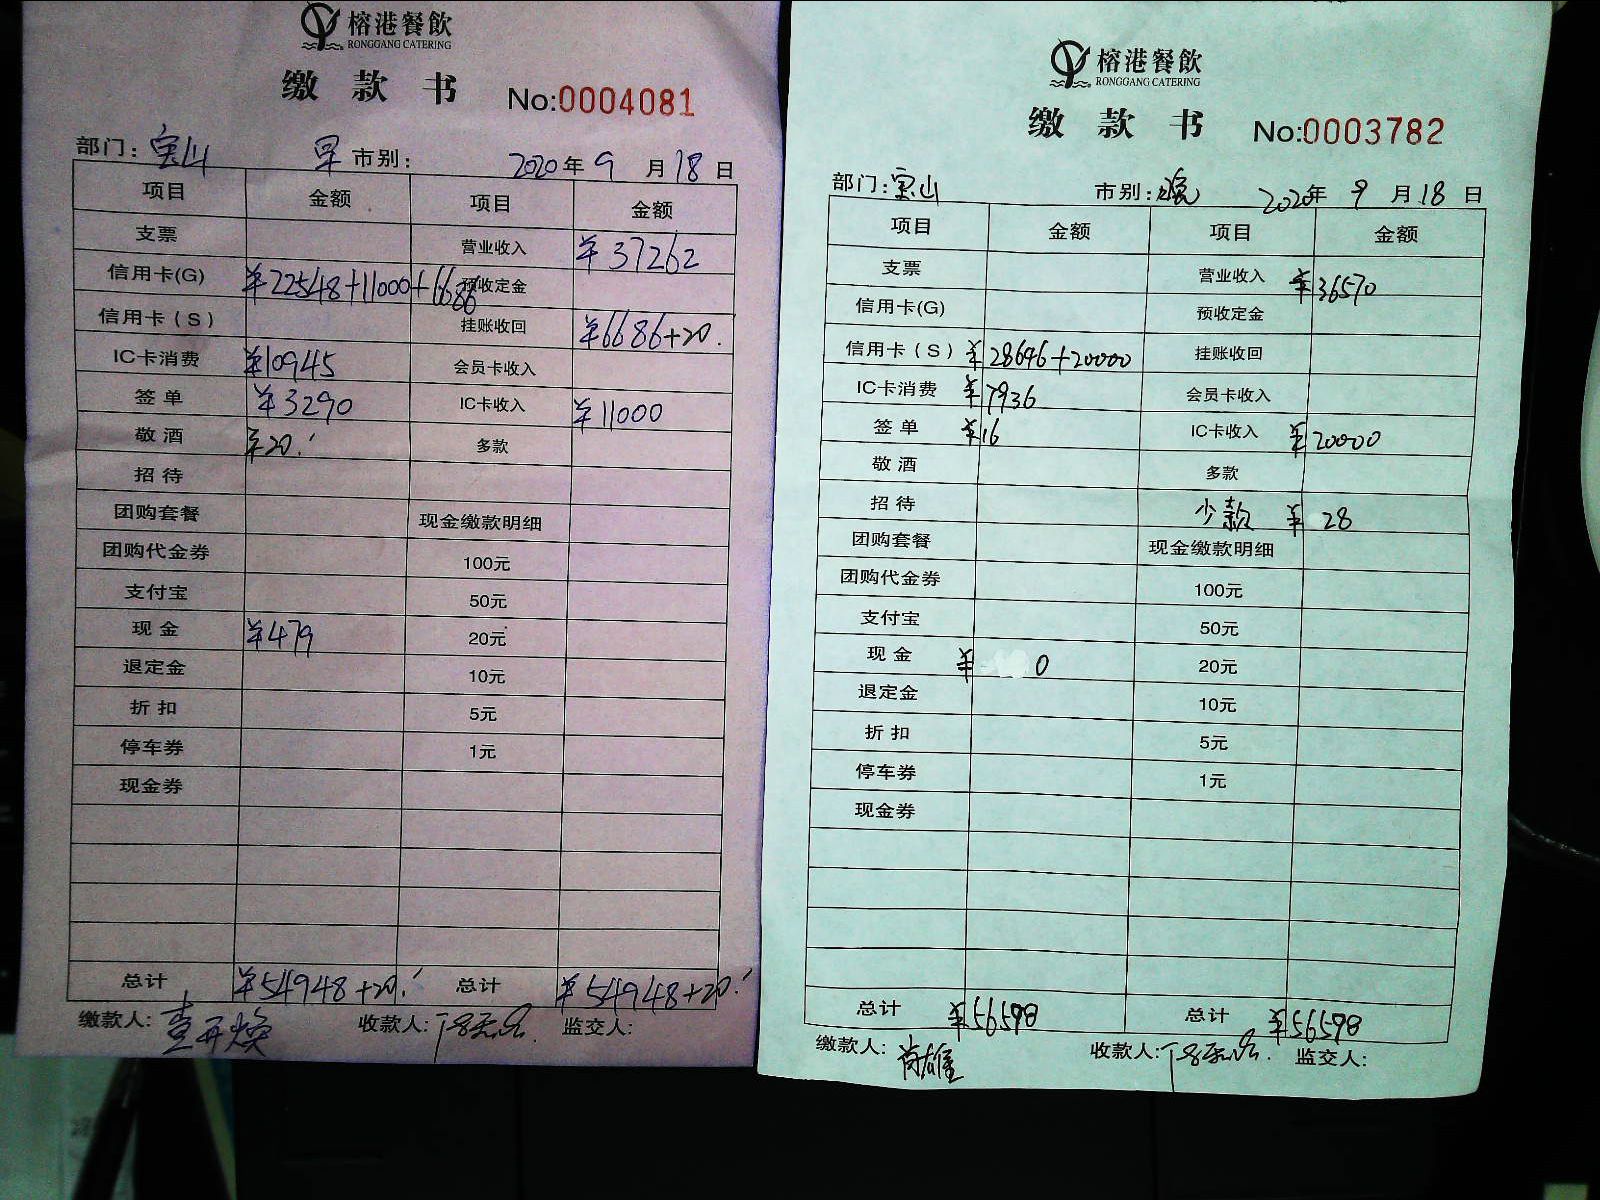 榕港餐飲
RONGGANG CATERING
缴款书 No:0004081
部门: 宝山 早 市别: 2020年9月18日
项目 金额 项目 金额
支票 营业收入 ¥37262
信用卡(G) ¥22548+11000+6686 预收定金
信用卡(S) 挂账收回 ¥6686+20.
IC卡消费 ¥10945 会员卡收入
签单 ¥3290 IC卡收入 ¥11000
敬酒 ¥20. 多款
招待
团购套餐 现金缴款明细
团购代金券 100元
支付宝 50元
现金 ¥479 20元
退定金 10元
折扣 5元
停车券 1元
现金券
总计 ¥54948+20. 总计 ¥54948+20.
缴款人: 收款人: 监交人:
榕港餐飲
RONGGANG CATERING
缴款书 No:0003782
部门: 宝山 市别: 晚 2020年9月18日
项目 金额 项目 金额
支票 营业收入 ¥36570
信用卡(G) 预收定金
信用卡(S) ¥28646+20000 挂账收回
IC卡消费 ¥7936 会员卡收入
签单 ¥16 IC卡收入 ¥20000
敬酒 多款
招待 少款 ¥28
团购套餐 现金缴款明细
团购代金券 100元
支付宝 50元
现金 ¥ 0 20元
退定金 10元
折扣 5元
停车券 1元
现金券
总计 ¥56598 总计 ¥56598
缴款人: 收款人: 监交人: